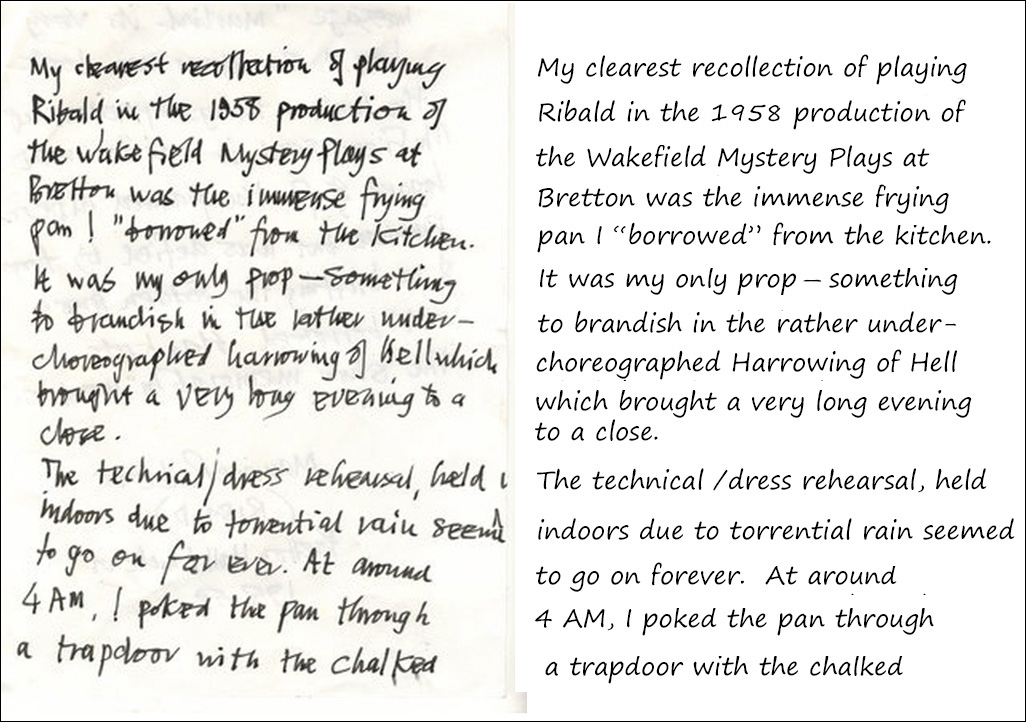 My clearest recollection of playing
Ribald in the 1958 production of
the Wakefield Mystery Plays at
Bretton was the immense frying
pan I "borrowed" from the kitchen.
It was my only prop – something
to brandish in the rather under-
choreographed harrowing of Hell which
brought a very long evening to a
close.
The technical/dress rehearsal, held
indoors due to torrential rain
to go on for ever. At around
4 AM, I poked the pan through
a trapdoor with the chalked
My clearest recollection of playing
Ribald in the 1958 production of
the Wakefield Mystery Plays at
Bretton was the immense frying
pan I “borrowed” from the kitchen.
It was my only prop – something
to brandish in the rather under-
choreographed Harrowing of Hell
which brought a very long evening
to a close.
The technical /dress rehearsal, held
indoors due to torrential rain seemed
to go on forever. At around
4 AM, I poked the pan through
a trapdoor with the chalked